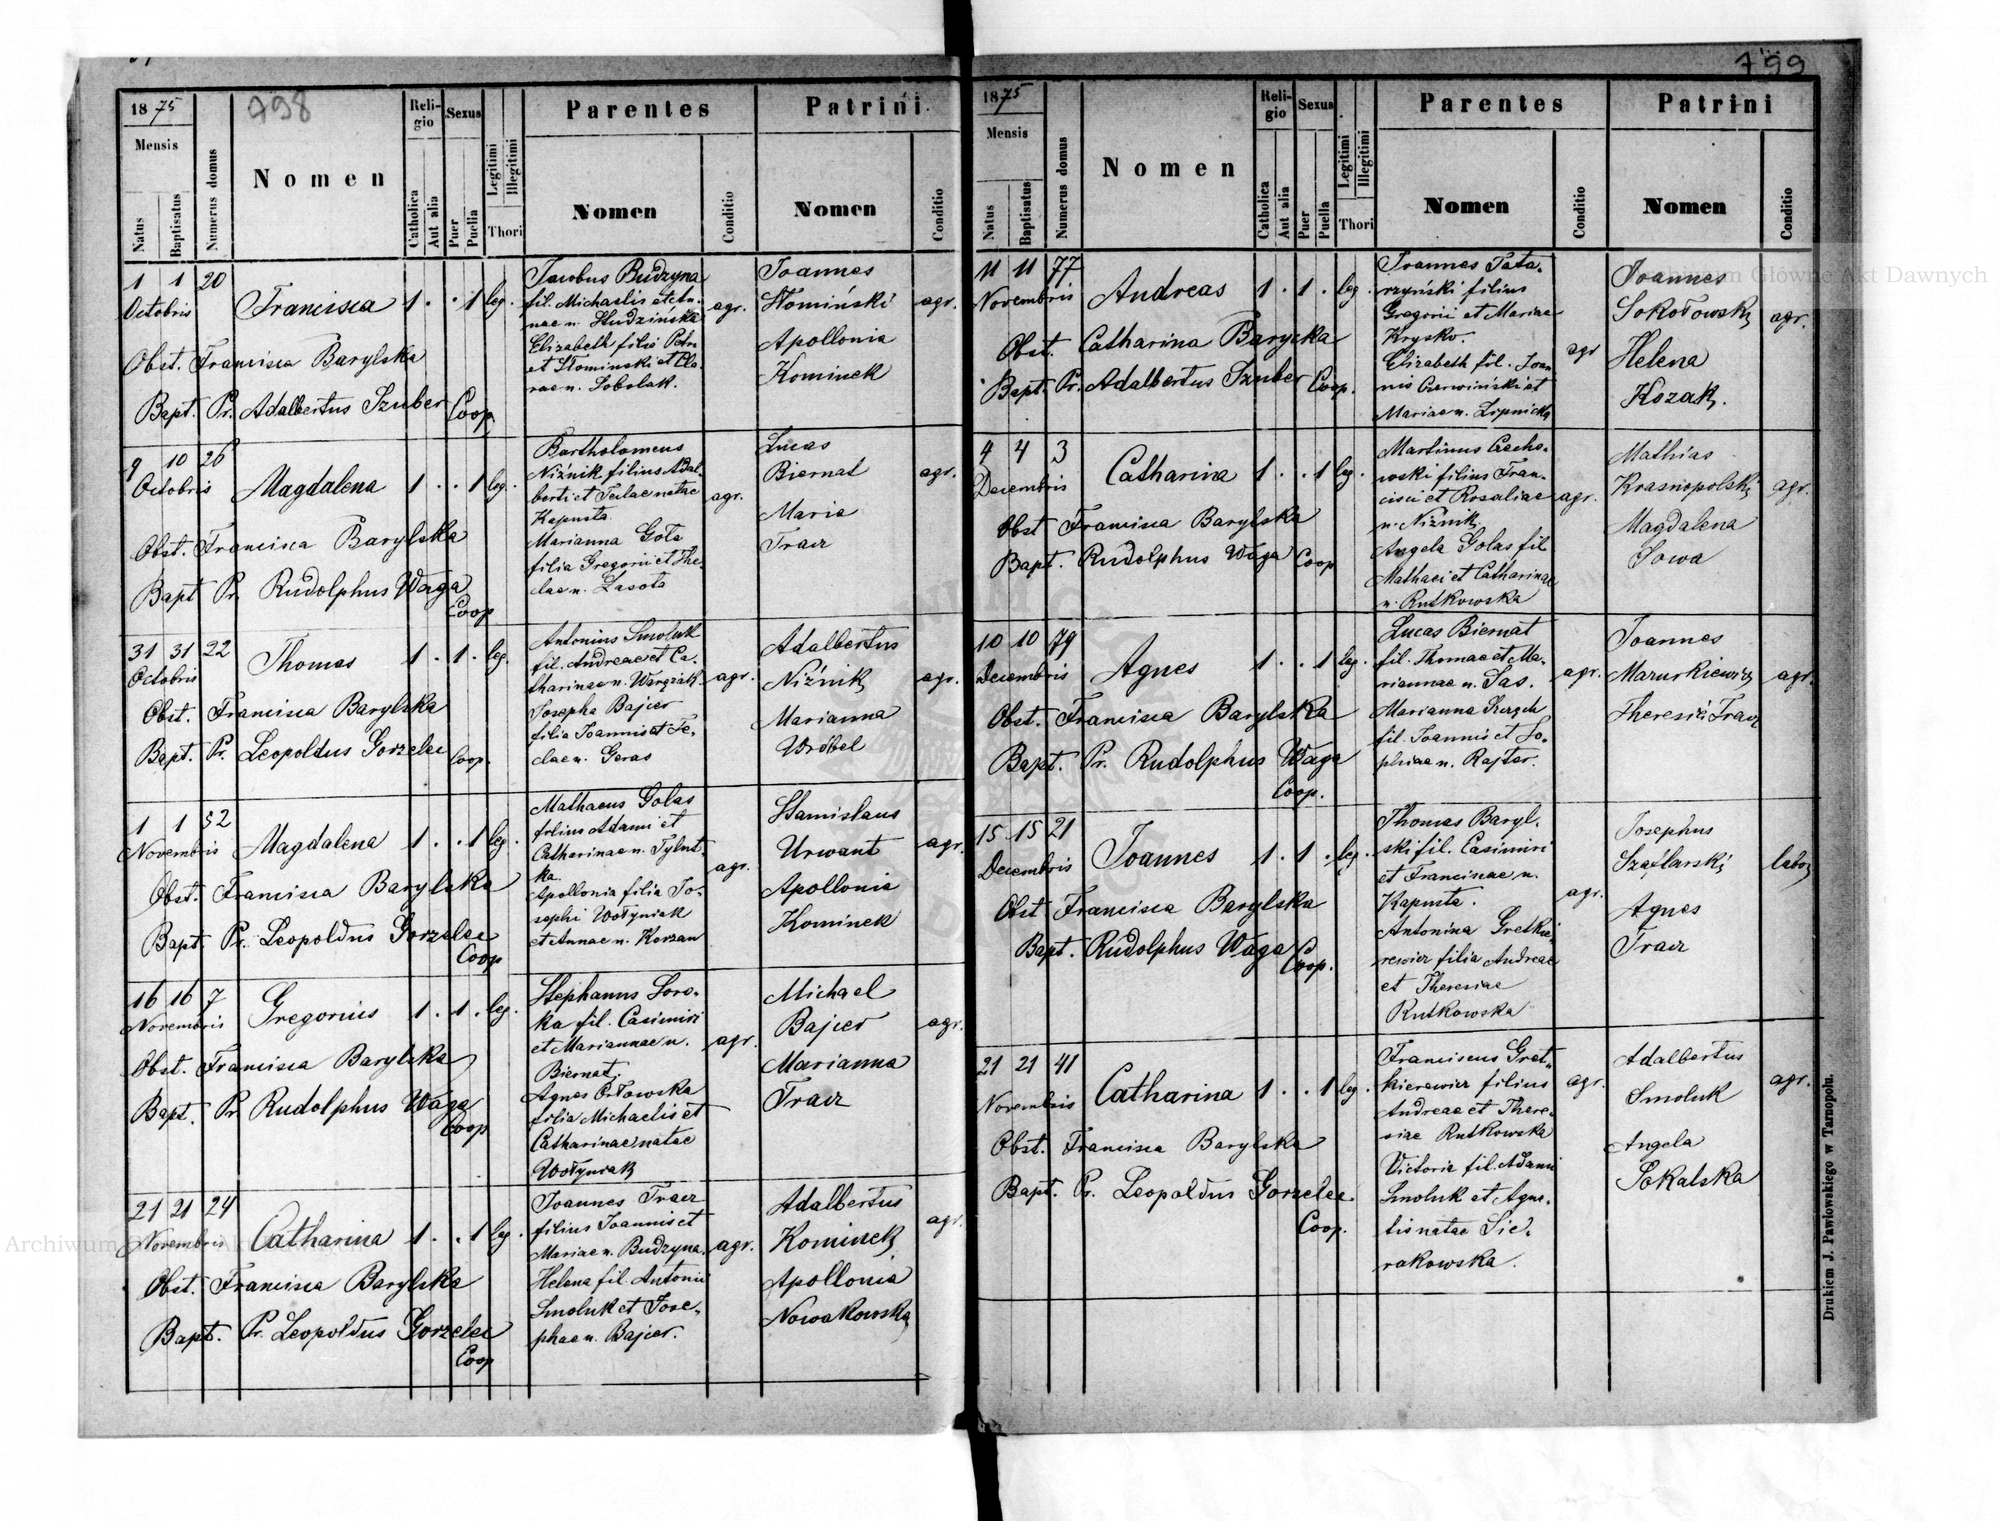 798
1875
Mensis
Natus
Baptisatus
Numerus domus
Nomen
Religio
Catholica
Aut alia
Sexus
Puer
Puella
Legitimi
Illegitimi
Thori
Parentes
Nomen
Conditio
Patrini
Nomen
Conditio
1 1 20
Octobris
Francisca 1 . . 1 leg.
Obst. Francisca Barylska
Bapt. Pr. Adalbertus Szuber Coop
Jacobus Budzyna
fil. Michaelis et An-
nae n. Studzińska
Elizabeth filia Petri
et Słominski et Cla-
rae n. Sobolak.
agr.
Joannes
Słomiński
Apollonia
Kominek
agr.
9 10 26
Octobris
Magdalena 1 . . 1 leg.
Obst. Francisca Barylska
Bapt Pr. Rudolphus Waga
Coop
Bartholomeus
Niźnik filius Adal-
berti et Teclae natae
Kapusta
Marianna Gola
filia Gregorii et The-
clae n. Lasota
agr.
Lucas
Biernat
Maria
Tracz
agr.
31 31 22
Octobris
Thomas 1 . 1 . leg.
Obst. Francisca Barylska
Bapt. Pr. Leopoldus Gorzelec Coop.
Antonius Smoluk
fil. Andreae et Ca-
tharinae n.
Josepha Bajcer
filia Joannis et Te-
clae n. Geras
agr.
Adalbertus
Niźnik
Marianna
Wróbel
agr.
1 1 52
Novembris
Magdalena 1 . . 1 leg.
Obst. Francisca Barylska
Bapt. Pr. Leopoldus Gorzelec
Coop
Mathaeus Golas
filius Adami et
Catharinae n. Tylut-
ka.
Apollonia filia Jo-
sephi Wołyniak
et Annae n. Korzan
agr.
Stanislaus
Urwant
Apollonia
Kominek
agr.
16 16 7
Novembris
Gregorius 1 . 1 . leg.
Obst. Francisca Barylska
Bapt. Pr. Rudolphus Waga
Coop
Stephanus Soro-
ka fil. Casimiri
et Mariannae n.
Biernat.
Agnes Orłowska
filia Michaelis et
Catharinae natae
Wołyniak
agr.
Michael
Bajcer
Marianna
Tracz
agr.
21 21 24
Novembris
Catharina 1 . . 1 leg.
Obst. Francisca Barylska
Bapt. Pr. Leopoldus Gorzelec
Coop
Joannes Tracz
filius Joannis et
Mariae n. Budzyna.
Helena fil. Antonii
Smoluk et Jose-
phae n. Bajcer.
agr.
Adalbertus
Kominek
Apollonia
Nowakowska
agr.
799
1875
Mensis
Natus
Baptisatus
Numerus domus
Nomen
Religio
Catholica
Aut alia
Sexus
Puer
Puella
Legitimi
Illegitimi
Thori
Parentes
Nomen
Conditio
Patrini
Nomen
Conditio
11 11 77
Novembris
Andreas 1 . 1 . leg.
Obst. Catharina Barycka
Bapt. Pr. Adalbertus Szuber Coop.
Joannes Tata-
rzyński filius
Gregorii et Mariae
Krysko.
Elizabeth fil. Joan-
nis Czerwiński et
Mariae n. Lipnicka
agr
Joannes
Sokołowski
Helena
Kozak.
agr.
4 4 3
Decembris
Catharina 1 . . 1 leg.
Obst Francisca Barylska
Bapt. Rudolphus Waga Coop
Martinus Czecho-
wski filius Fran-
cisci et Rosaliae
n. Niźnik.
Angela Golas fil
Mathaei et Catharinae
n. Rutkowska
agr.
Mathias
Krasnopolski
Magdalena
Sowa
agr.
10 10 79
Decembris
Agnes 1 . . 1 leg.
Obst. Francisca Barylska
Bapt. Pr. Rudolphus Waga
Coop.
Lucas Biernat
fil. Thomae et Ma-
riannae n. Sas.
Marianna
fil. Joannis et So-
phiae n. Rajter.
agr.
Joannes
Mazurkiewicz
Theresia Tracz
agr.
15 15 21
Decembris
Joannes 1 . 1 . leg.
Obst Francisca Barylska
Bapt. Rudolphus Waga Coop.
Thomas Baryl-
ski fil. Casimiri
et Franciscae n.
Kapusta.
Antonina Gretkie-
rewicz filia Andreae
et Theresiae
Rutkowska
agr.
Josephus
Szaflarski
Agnes
Tracz
labor
21 21 41
Novembris
Catharina 1 . . 1 leg.
Obst. Francisca Barylska
Bapt. Pr. Leopoldus Gorzelec
Coop.
Franciscus Gret-
kierewicz filius
Andreae et There-
siae Rutkowska
Victoria fil. Adami
Smoluk et Agne-
tis natae Sie-
rakowska.
agr.
Adalbertus
Smoluk
Angela
Sokalska
agr.
Drukiem J. Pawłowskiego w Tarnopolu.
Archiwum Główne Akt Dawnych
Archiwum Główne Akt Dawnych